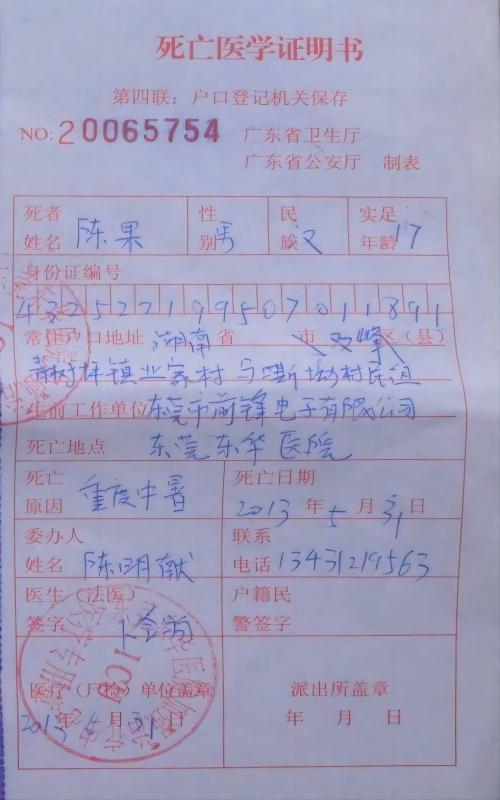 死亡医学证明书
第四联：户口登记机关保存
NO: 20065754 广东省卫生厅
广东省公安厅 制表
死者姓名 陈果 性别 男 民族 汉 实足年龄 17
身份证编号
432522199507011891
常住户口地址 湖南 省 市 双峰 区（县）
青树坪镇业家村 村民组
生前工作单位 东莞市前锋电子有限公司
死亡地点 东莞东华医院
死亡原因 重度中暑 死亡日期 2013 年 5 月 31 日
委办人姓名 陈明献 联系电话 13431219563
医生（法医）签字 户籍民警签字
医疗（尸检）单位盖章 派出所盖章
2013 年 5 月 31 日 年 月 日